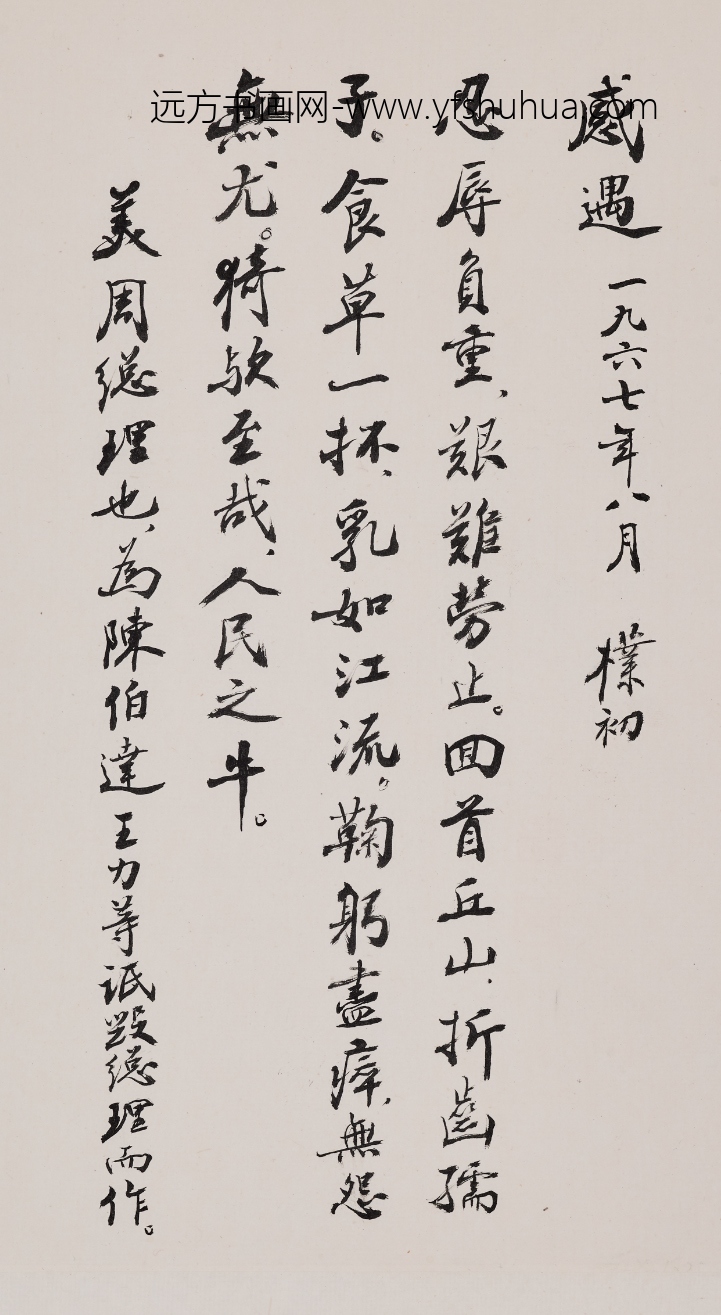 远方书画网-www.yfshuhua.com
感遇 一九六七年八月 樸初
忍辱負重、艱難勞止。回首丘山、折齒孺
子。食草一抔、乳如江流。鞠躬盡瘁、無怨
無尤。猗欤至哉、人民之牛。
美周總理也、為陳伯達王力等詆毀總理而作。